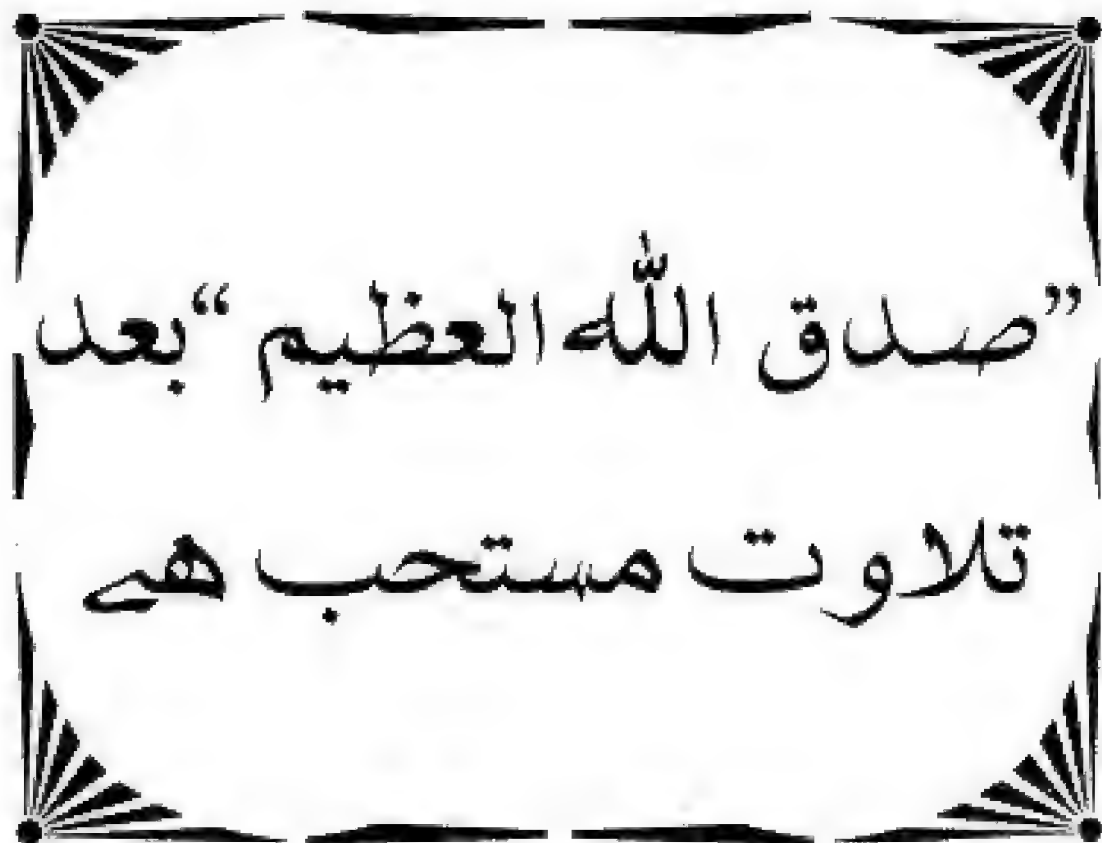 ”صدق اللّٰه العظیم“ بعد
تلاوت مستحب ھے